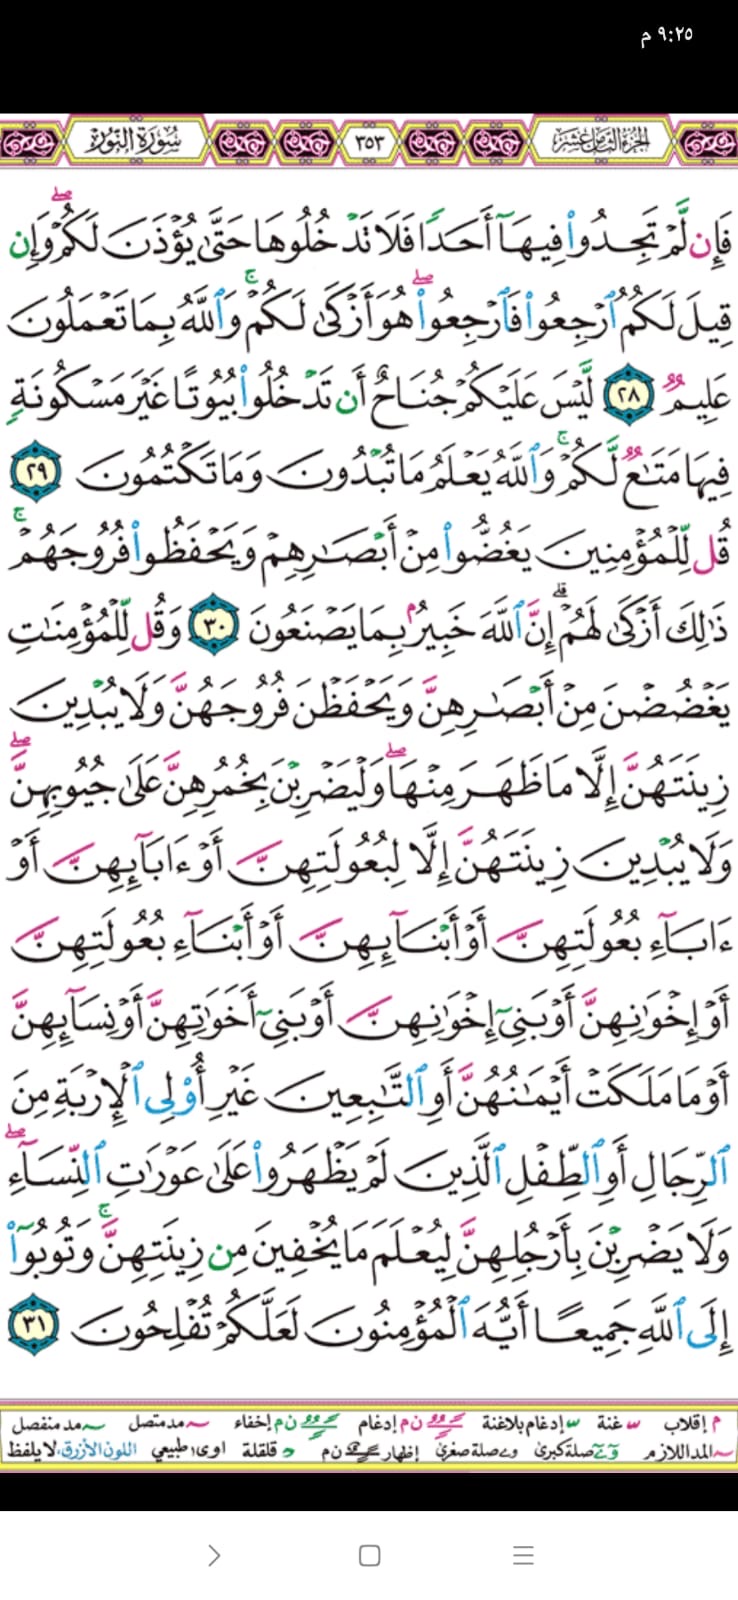 ٩:٢٥ م
سُورَةُ النُّورِ
٣٥٣
الجُزْءُ الثَّامِنَ عَشَرَ
فَإِن لَّمْ تَجِدُوا۟ فِيهَآ أَحَدًا فَلَا تَدْخُلُوهَا حَتَّىٰ يُؤْذَنَ لَكُمْ ۖ وَإِن
قِيلَ لَكُمُ ٱرْجِعُوا۟ فَٱرْجِعُوا۟ ۖ هُوَ أَزْكَىٰ لَكُمْ ۚ وَٱللَّهُ بِمَا تَعْمَلُونَ
عَلِيمٌ ٢٨ لَّيْسَ عَلَيْكُمْ جُنَاحٌ أَن تَدْخُلُوا۟ بُيُوتًا غَيْرَ مَسْكُونَةٍ
فِيهَا مَتَـٰعٌ لَّكُمْ ۚ وَٱللَّهُ يَعْلَمُ مَا تُبْدُونَ وَمَا تَكْتُمُونَ ٢٩
قُل لِّلْمُؤْمِنِينَ يَغُضُّوا۟ مِنْ أَبْصَـٰرِهِمْ وَيَحْفَظُوا۟ فُرُوجَهُمْ ۚ
ذَٰلِكَ أَزْكَىٰ لَهُمْ ۗ إِنَّ ٱللَّهَ خَبِيرٌۢ بِمَا يَصْنَعُونَ ٣٠ وَقُل لِّلْمُؤْمِنَـٰتِ
يَغْضُضْنَ مِنْ أَبْصَـٰرِهِنَّ وَيَحْفَظْنَ فُرُوجَهُنَّ وَلَا يُبْدِينَ
زِينَتَهُنَّ إِلَّا مَا ظَهَرَ مِنْهَا ۖ وَلْيَضْرِبْنَ بِخُمُرِهِنَّ عَلَىٰ جُيُوبِهِنَّ ۖ
وَلَا يُبْدِينَ زِينَتَهُنَّ إِلَّا لِبُعُولَتِهِنَّ أَوْ ءَابَآئِهِنَّ أَوْ
ءَابَآءِ بُعُولَتِهِنَّ أَوْ أَبْنَآئِهِنَّ أَوْ أَبْنَآءِ بُعُولَتِهِنَّ
أَوْ إِخْوَٰنِهِنَّ أَوْ بَنِىٓ إِخْوَٰنِهِنَّ أَوْ بَنِىٓ أَخَوَٰتِهِنَّ أَوْ نِسَآئِهِنَّ
أَوْ مَا مَلَكَتْ أَيْمَـٰنُهُنَّ أَوِ ٱلتَّـٰبِعِينَ غَيْرِ أُو۟لِى ٱلْإِرْبَةِ مِنَ
ٱلرِّجَالِ أَوِ ٱلطِّفْلِ ٱلَّذِينَ لَمْ يَظْهَرُوا۟ عَلَىٰ عَوْرَٰتِ ٱلنِّسَآءِ ۖ
وَلَا يَضْرِبْنَ بِأَرْجُلِهِنَّ لِيُعْلَمَ مَا يُخْفِينَ مِن زِينَتِهِنَّ ۚ وَتُوبُوٓا۟
إِلَى ٱللَّهِ جَمِيعًا أَيُّهَ ٱلْمُؤْمِنُونَ لَعَلَّكُمْ تُفْلِحُونَ ٣١
م إقلاب غنة إدغام بلاغنة ن م إدغام ن م إخفاء مد متصل مد منفصل
المد اللازم صلة كبرى صلة صغرى إظهار ن م قلقلة اوى طبيعي اللون الأزرق لا يلفظ